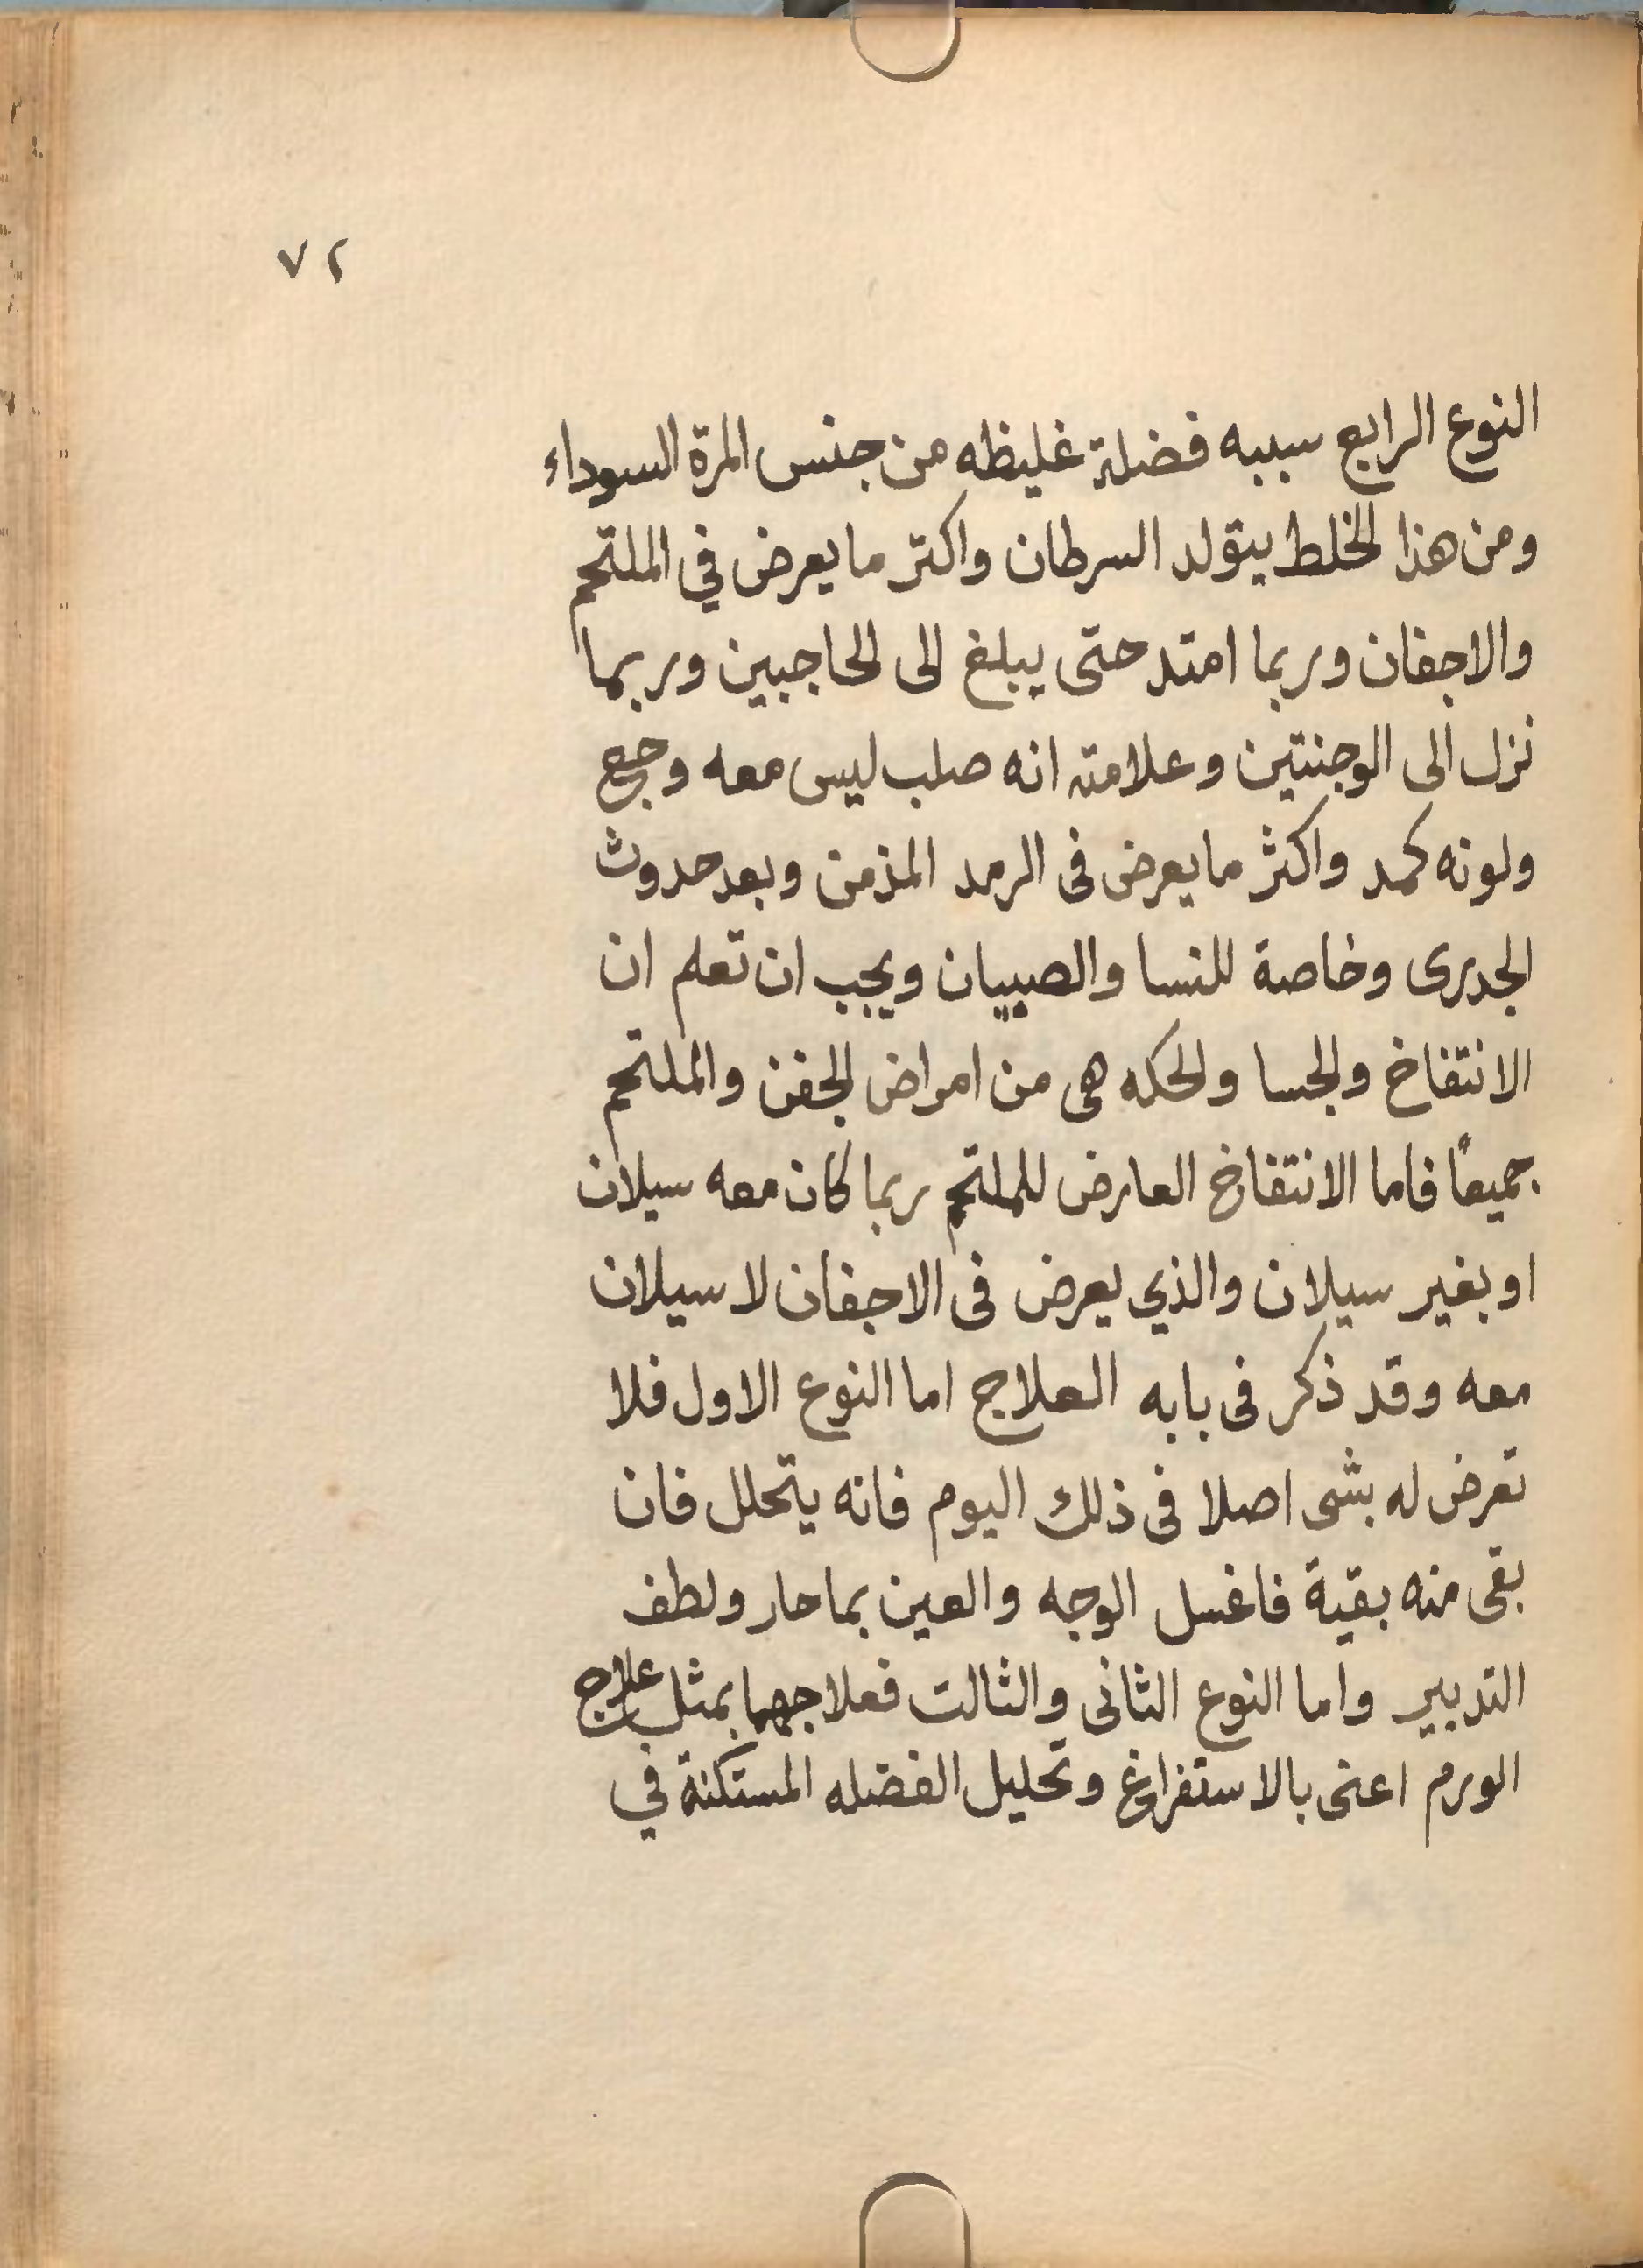 ٧٢
النوع الرابع سببه فضلة غليظه من جنس المرة السوداء
ومن هذا الخلط يتولد السرطان واكتر ما يعرض في الملتحم
والاجفان وربما امتد حتى يبلغ الى الحاجبين وربما
نزل الى الوجنتين وعلامته انه صلب ليس معه وجع
ولونه كمد واكثر ما يعرض فى الرمد المذمن وبعد حدوث
الجدرى وخاصة للنسا والصبيان ويجب ان تعلم ان
الانتفاخ والجسا والحكه هى من امراض الجفن والملتحم
جميعًا فاما الانتفاخ العارض للملتحم ربما كان معه سيلان
او بغير سيلان والذي يعرض فى الاجفان لا سيلان
معه وقد ذكر فى بابه العلاج اما النوع الاول فلا
تعرض له بشى اصلا فى ذلك اليوم فانه يتحلل فان
بقى منه بقية فاغسل الوجه والعين بما حار ولطف
التدبير واما النوع الثانى والثالت فعلاجهما بمثل علاج
الورم اعنى بالاستفراغ وتحليل الفضله المستكنة في